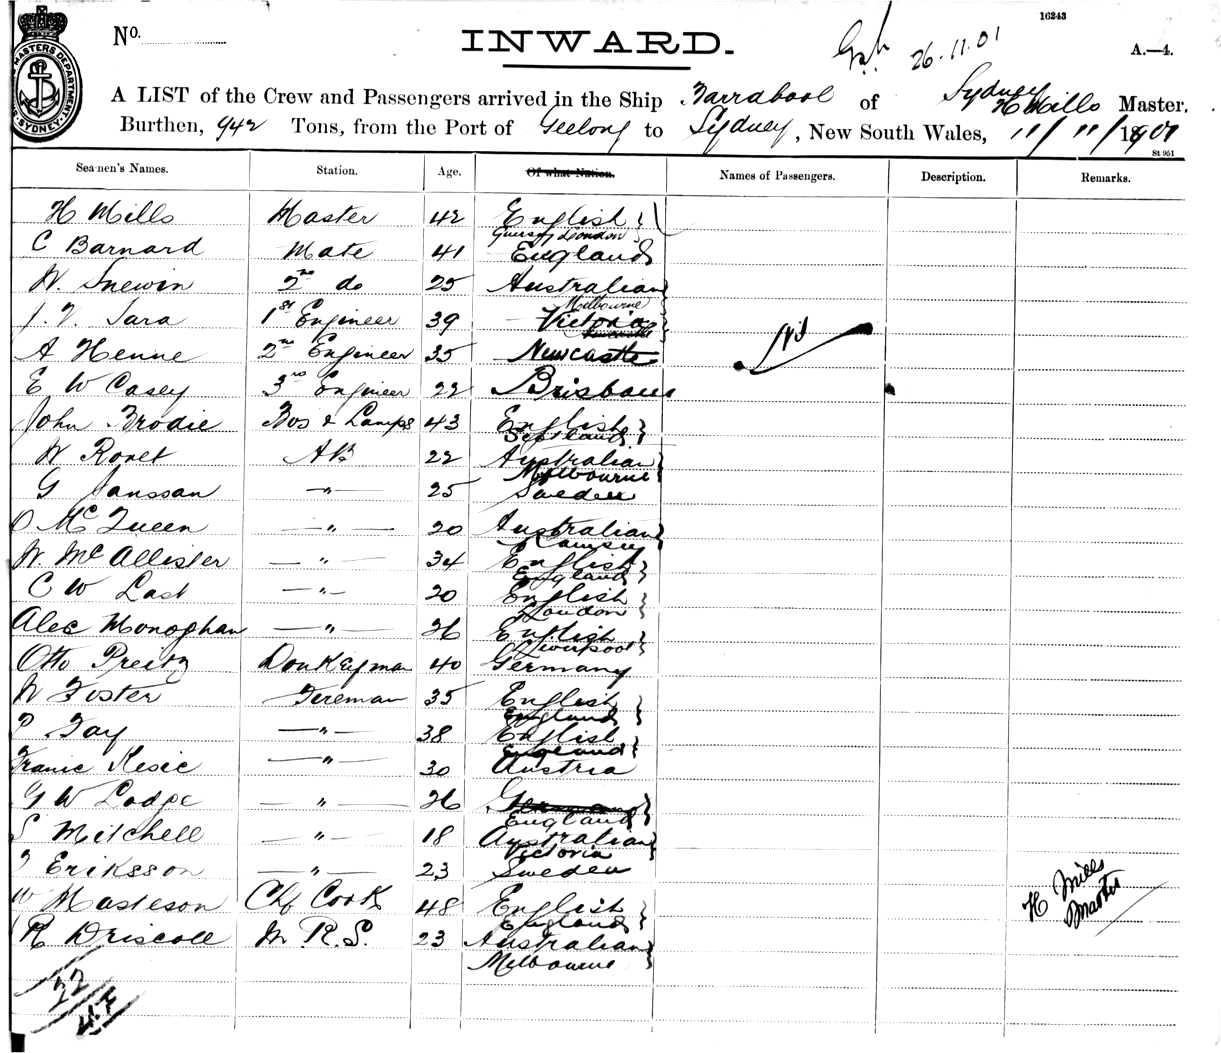 16243
No.
INWARD.
26.11.01
A.—4.
MASTERS DEPARTMENT
SYDNEY
A LIST of the Crew and Passengers arrived in the Ship Barrabool of Sydney H Mills Master.
Burthen, 942 Tons, from the Port of Geelong to Sydney, New South Wales, 11/11/1901
St 951
Seamen's Names. Station. Age. Of what Nation. Names of Passengers. Description. Remarks.
H Mills Master 42 English
Guersey London
C Barnard Mate 41 England
W. Snewin 2nd do 25 Australian
Melbourne
J. T. Sara 1st Engineer 39 Victoria
Nil
A Henne 2nd Engineer 35 Newcastle
E W Casey 3rd Engineer 22 Brisbane
John Brodie Bos & Lamps 43 English
Scotland
W Rovet AB 22 Australian
Melbourne
G Janssan —"— 25 Sweden
D McQueen —"— 20 Australian
Ramsey
W. McAllister —"— 34 English
England
C W Last —"— 20 English
London
Alec Monoghan —"— 26 English
Liverpool
Otto Preitz Donkeyman 40 Germany
W Foster Fireman 35 English
England
P Fay —"— 38 English
England
Franic Kesic —"— 30 Austria
G W Lodge —"— 26
England
S Mitchell —"— 18 Australian
Victoria
T Eriksson —"— 23 Sweden
W Masteson Chf Cook 48 English
England
H Mills
Master
R Driscoll M R.S. 23 Australian
Melbourne
22
4F